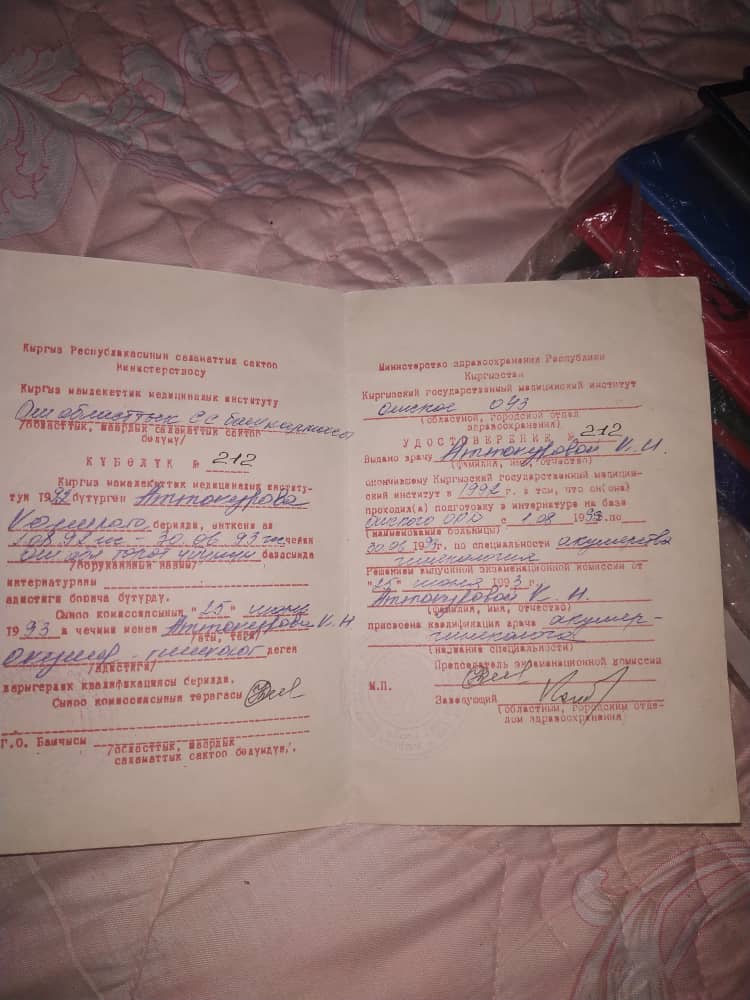 Кыргыз Республикасынын саламаттык сактоо
Министерствосу
Кыргыз мамлекеттик медициналык институту
Ош областтык СС башкармасы
/областтык, шаардык саламаттык сактоо
бөлүмү/
КҮБӨЛҮК № 212
Кыргыз мамлекеттик медициналык институ-
тун 1992 бүтүргөн Аттокурова
берилди, анткени ал
1.08.92 ж - 30.06.93 ж чейин
базасында
/ооруканын наамы/
интернатураны
адистиги боюнча бүтүрдү.
Сыноо комиссиясынын "25" июнь
1993 ж чечими менен Аттокуровой К Н
/аты, теги/
акушер - гинеколог деген
/адистиги/
даригерлик квалификациясы берилди.
Сыноо комиссиясынын төрагасы
Г.О. Башчысы
/областтык, шаардык
саламаттык сактоо бөлүмдүн/.
Министерство здравоохранения Республики
Кыргызстан
Кыргызский государственный медицинский институт
Ошское ОУЗ
(областной, городской отдел
здравоохранения)
УДОСТОВЕРЕНИЕ № 212
Выдано врачу Аттокуровой К. Н.
(фамилия, имя, отчество)
окончившему Кыргызский государственный медицин-
ский институт в 1992 г. в том, что он(она)
проходил(а) подготовку в интернатуре на базе
Ошского с 1 08 1992 по
(наименование больницы)
30.06 1993г. по специальности акушерство
гинекология
Решением выпускной экзаменационной комиссии от
"25" июня 1993 г.
Аттокуровой К. Н.
(фамилия, имя, отчество)
присвоена квалификация врача акушер-
гинеколога
(название специальности)
Председатель экзаменационной комиссии
М.П.
Заведующий
(областным, городским отде-
лом здравоохранения)